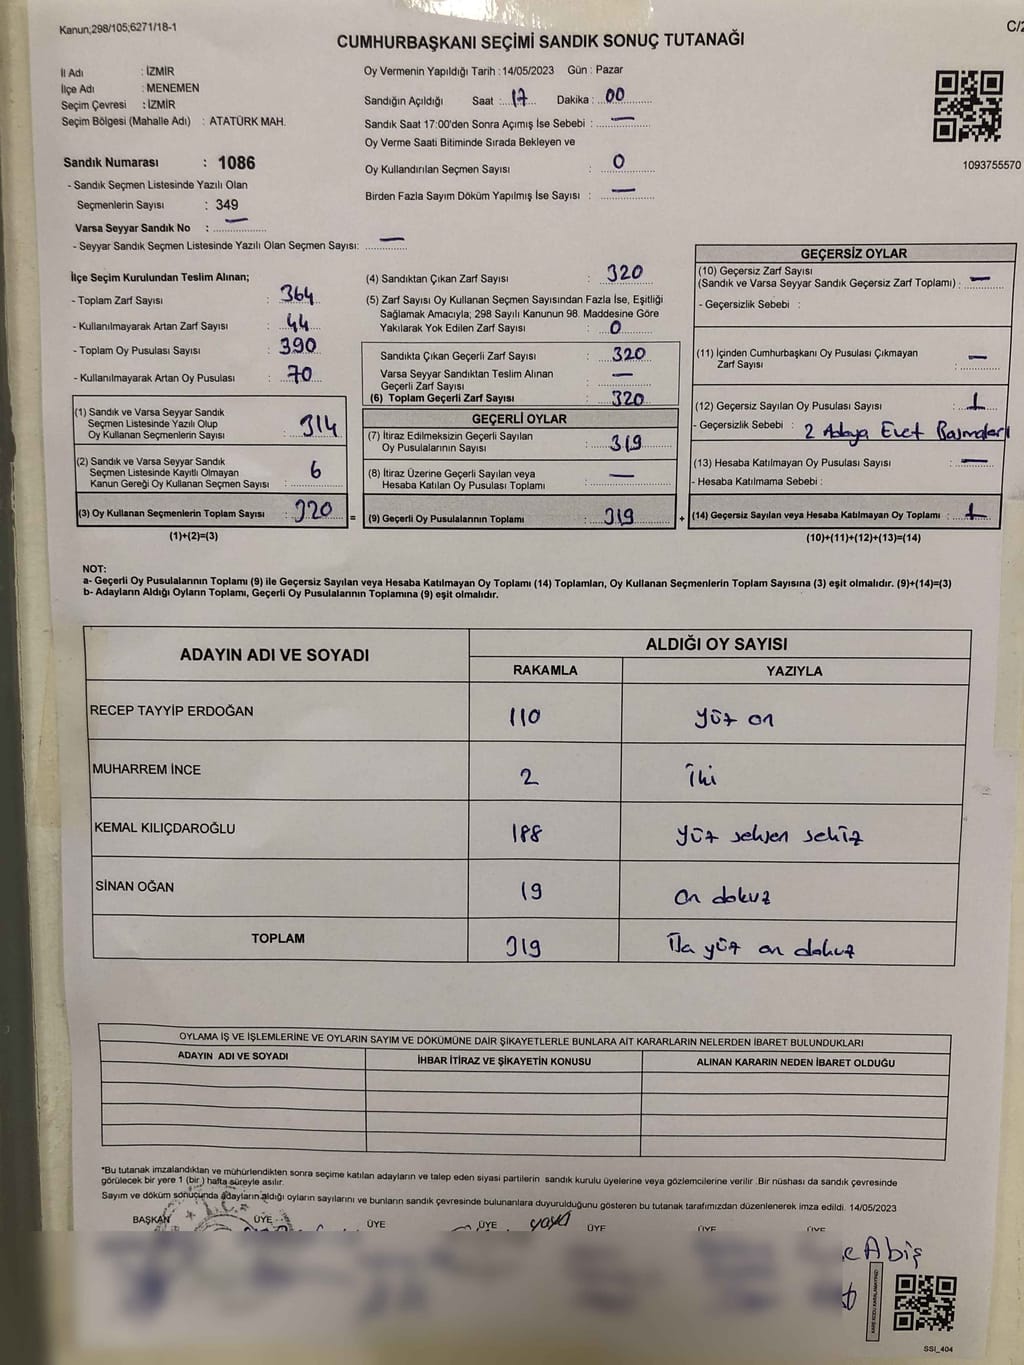 Kanun;298/105;6271/18-1
C/2
CUMHURBAŞKANI SEÇİMİ SANDIK SONUÇ TUTANAĞI
İl Adı : İZMİR
İlçe Adı : MENEMEN
Seçim Çevresi : İZMİR
Seçim Bölgesi (Mahalle Adı) : ATATÜRK MAH.
Sandık Numarası : 1086
- Sandık Seçmen Listesinde Yazılı Olan
Seçmenlerin Sayısı : 349
Varsa Seyyar Sandık No : —
- Seyyar Sandık Seçmen Listesinde Yazılı Olan Seçmen Sayısı: —
Oy Vermenin Yapıldığı Tarih : 14/05/2023 Gün : Pazar
Sandığın Açıldığı Saat : 17 Dakika : 00
Sandık Saat 17:00'den Sonra Açımış İse Sebebi : —
Oy Verme Saati Bitiminde Sırada Bekleyen ve
Oy Kullandırılan Seçmen Sayısı : 0
Birden Fazla Sayım Döküm Yapılmış İse Sayısı : —
1093755570
İlçe Seçim Kurulundan Teslim Alınan;
- Toplam Zarf Sayısı : 364
- Kullanılmayarak Artan Zarf Sayısı : 44
- Toplam Oy Pusulası Sayısı : 390
- Kullanılmayarak Artan Oy Pusulası : 70
(1) Sandık ve Varsa Seyyar Sandık
Seçmen Listesinde Yazılı Olup
Oy Kullanan Seçmenlerin Sayısı : 314
(2) Sandık ve Varsa Seyyar Sandık
Seçmen Listesinde Kayıtlı Olmayan
Kanun Gereği Oy Kullanan Seçmen Sayısı : 6
(3) Oy Kullanan Seçmenlerin Toplam Sayısı : 320 =
(1)+(2)=(3)
(4) Sandıktan Çıkan Zarf Sayısı : 320
(5) Zarf Sayısı Oy Kullanan Seçmen Sayısından Fazla İse, Eşitliği
Sağlamak Amacıyla; 298 Sayılı Kanunun 98. Maddesine Göre
Yakılarak Yok Edilen Zarf Sayısı : 0
Sandıkta Çıkan Geçerli Zarf Sayısı : 320
Varsa Seyyar Sandıktan Teslim Alınan
Geçerli Zarf Sayısı : —
(6) Toplam Geçerli Zarf Sayısı : 320
GEÇERLİ OYLAR
(7) İtiraz Edilmeksizin Geçerli Sayılan
Oy Pusulalarının Sayısı : 319
(8) İtiraz Üzerine Geçerli Sayılan veya
Hesaba Katılan Oy Pusulası Toplamı : —
(9) Geçerli Oy Pusulalarının Toplamı : 319 +
GEÇERSİZ OYLAR
(10) Geçersiz Zarf Sayısı
(Sandık ve Varsa Seyyar Sandık Geçersiz Zarf Toplamı) : —
- Geçersizlik Sebebi :
(11) İçinden Cumhurbaşkanı Oy Pusulası Çıkmayan
Zarf Sayısı : —
(12) Geçersiz Sayılan Oy Pusulası Sayısı : 1
- Geçersizlik Sebebi : 2 Adaya Evet Basmaları
(13) Hesaba Katılmayan Oy Pusulası Sayısı : —
- Hesaba Katılmama Sebebi :
(14) Geçersiz Sayılan veya Hesaba Katılmayan Oy Toplamı : 1
(10)+(11)+(12)+(13)=(14)
NOT:
a- Geçerli Oy Pusulalarının Toplamı (9) ile Geçersiz Sayılan veya Hesaba Katılmayan Oy Toplamı (14) Toplamları, Oy Kullanan Seçmenlerin Toplam Sayısına (3) eşit olmalıdır. (9)+(14)=(3)
b- Adayların Aldığı Oyların Toplamı, Geçerli Oy Pusulalarının Toplamına (9) eşit olmalıdır.
ADAYIN ADI VE SOYADI ALDIĞI OY SAYISI
RAKAMLA YAZIYLA
RECEP TAYYİP ERDOĞAN 110 yüz on
MUHARREM İNCE 2 iki
KEMAL KILIÇDAROĞLU 188 yüz seksen sekiz
SİNAN OĞAN 19 on dokuz
TOPLAM 319 Üç yüz on dokuz
OYLAMA İŞ VE İŞLEMLERİNE VE OYLARIN SAYIM VE DÖKÜMÜNE DAİR ŞİKAYETLERLE BUNLARA AİT KARARLARIN NELERDEN İBARET BULUNDUKLARI
ADAYIN ADI VE SOYADI İHBAR İTİRAZ VE ŞİKAYETİN KONUSU ALINAN KARARIN NEDEN İBARET OLDUĞU
*Bu tutanak imzalandıktan ve mühürlendikten sonra seçime katılan adayların ve talep eden siyasi partilerin sandık kurulu üyelerine veya gözlemcilerine verilir .Bir nüshası da sandık çevresinde
görülecek bir yere 1 (bir ) hafta süreyle asılır.
Sayım ve döküm sonucunda adayların aldığı oyların sayılarını ve bunların sandık çevresinde bulunanlara duyurulduğunu gösteren bu tutanak tarafımızdan düzenlenerek imza edildi. 14/05/2023
BAŞKAN ÜYE ÜYE ÜYE ÜYE ÜYE ÜYE
SSI_404